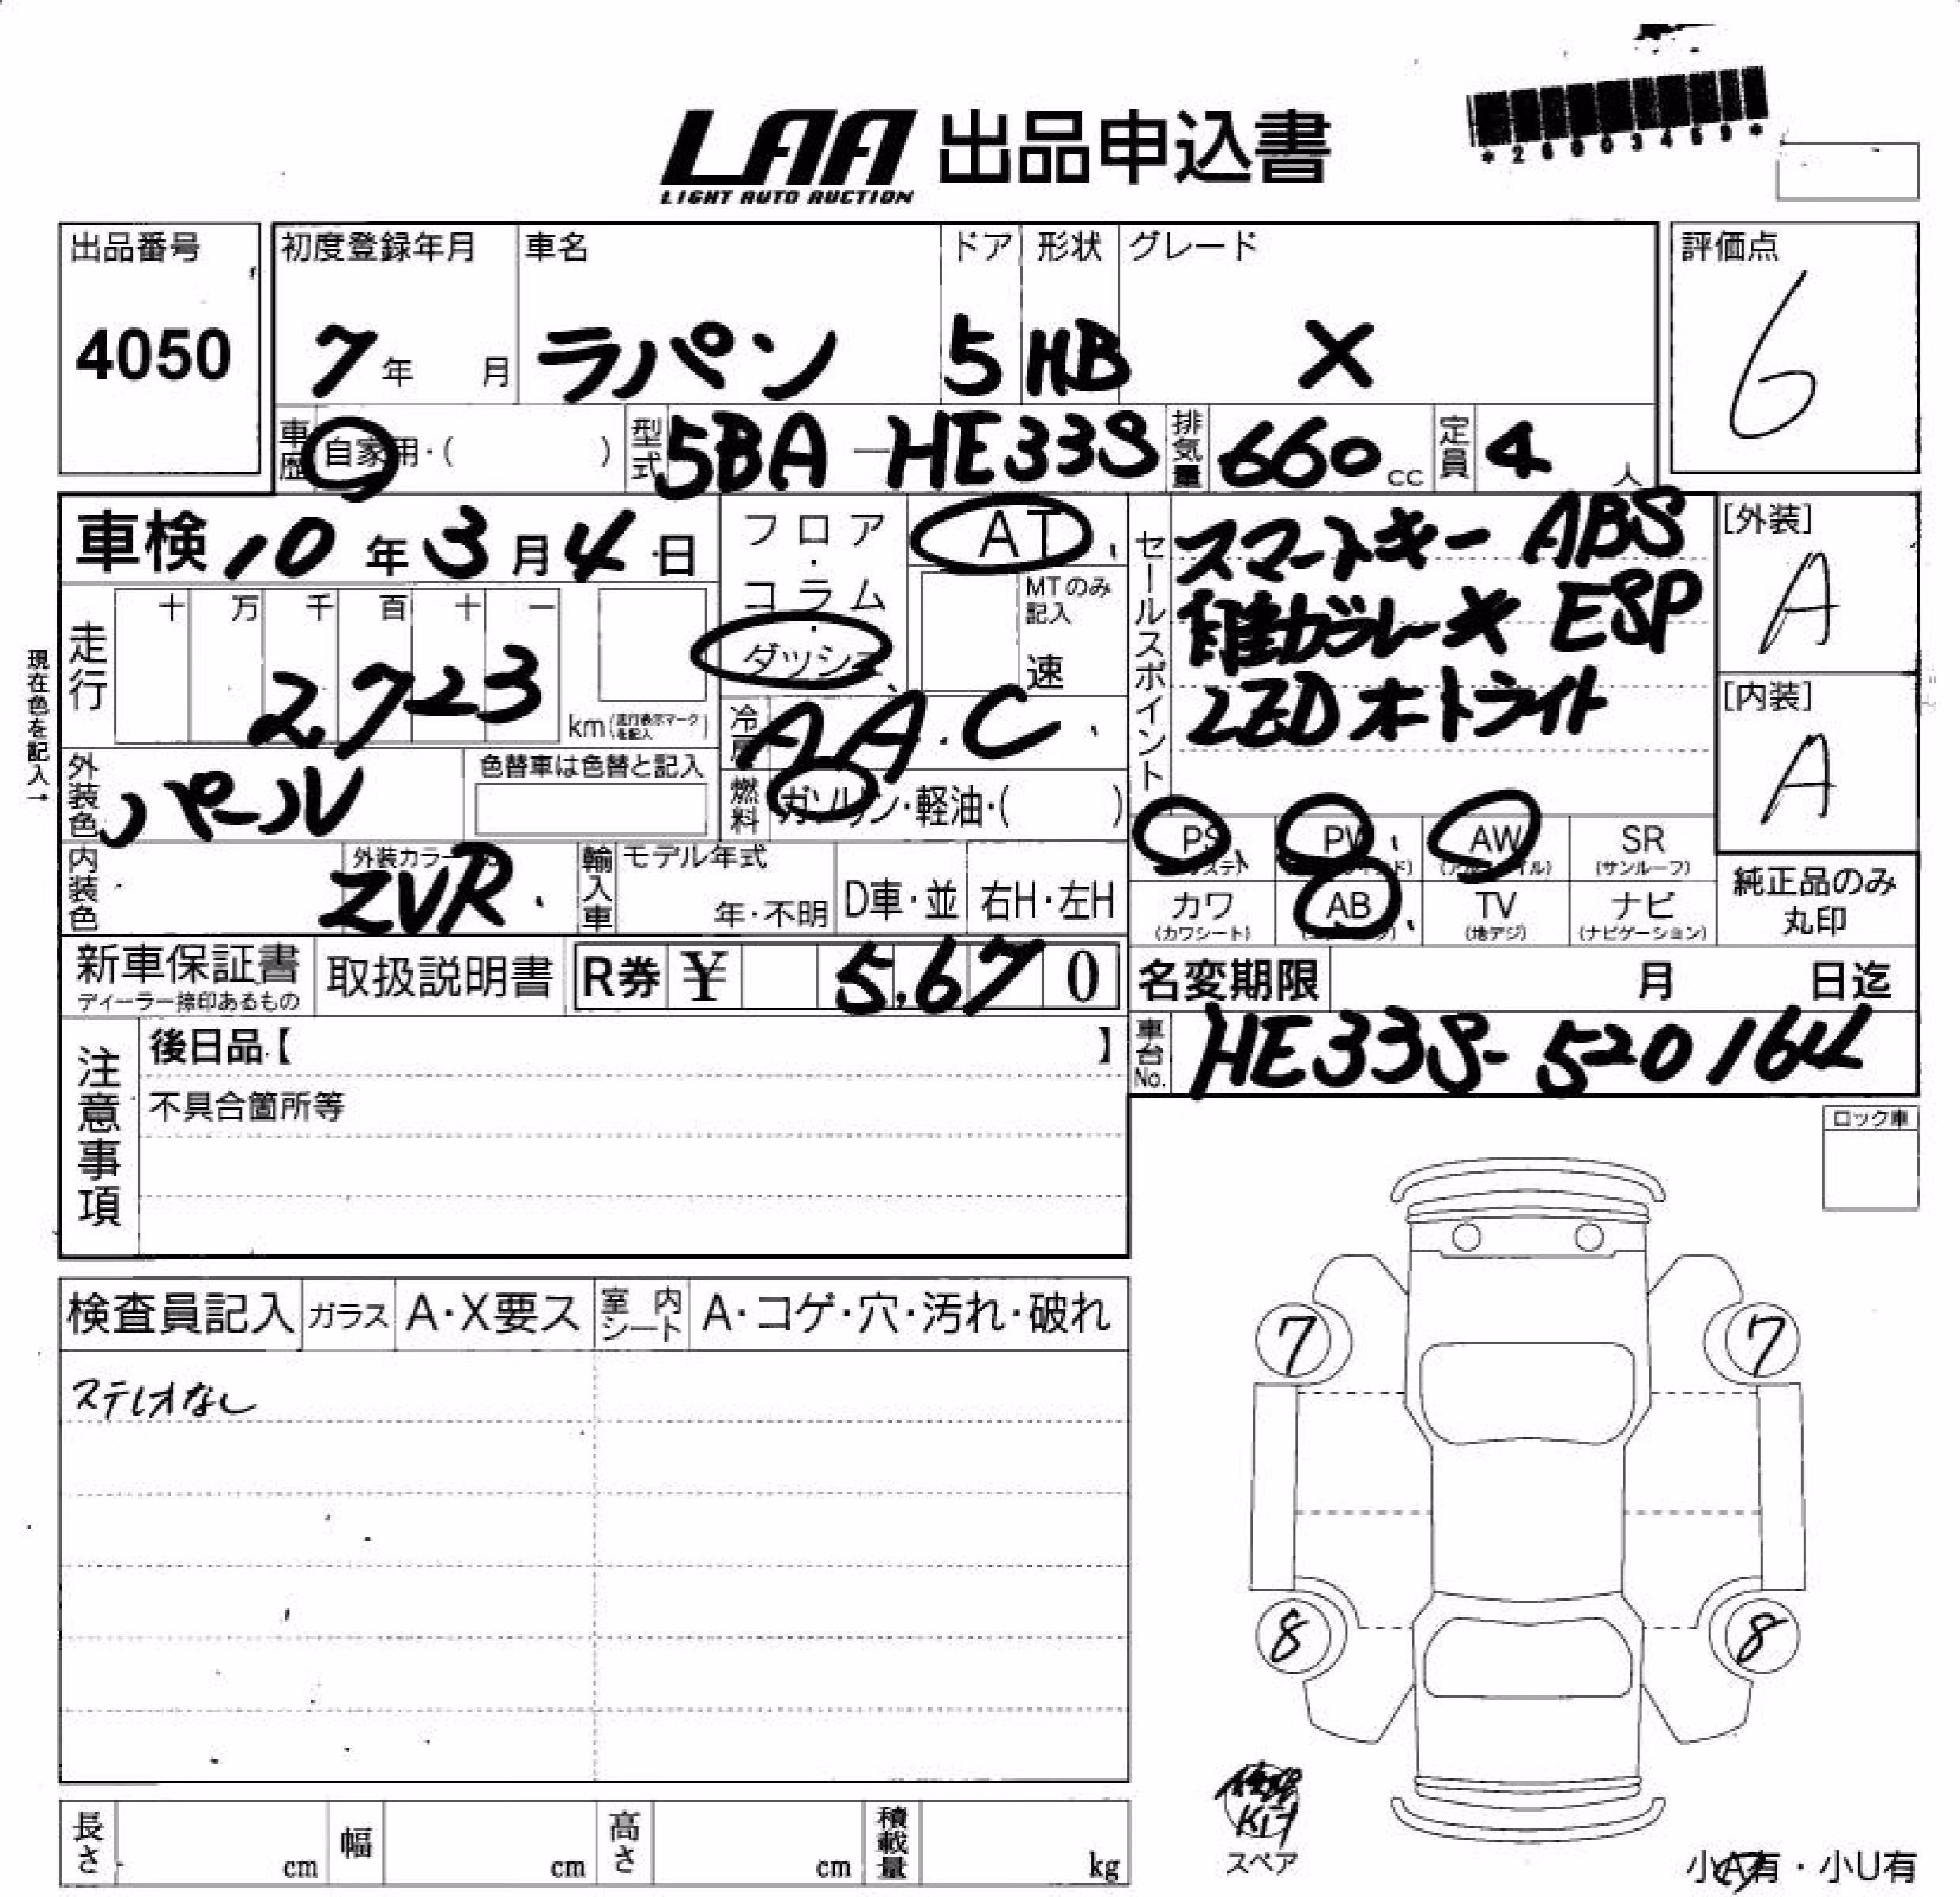 *26003469*
LAA 出品申込書
LIGHT AUTO AUCTION
出品番号
4050
初度登録年月
7年 月
車名
ラパン
ドア
5
形状
HB
グレード
X
評価点
6
車歴 自家用・( )
型式 5BA-HE33S
排気量 660cc
定員 4人
車検 10年3月4日
現在色を記入→
走行
十 万 千 百 十 一
2,723
km(走行表示マークを記入)
フロア・コラム・ダッシュ
AT
MTのみ記入
速
冷房 AAC
燃料 ガソリン・軽油・( )
外装色 パール
色替車は色替と記入
内装色
外装カラーNo.
ZVR
輸入車
モデル年式
年・不明
D車・並
右H・左H
セールスポイント
スマートキー ABS
自動ブレーキ ESP
LEDオートライト
[外装]
A
[内装]
A
PS PW AW SR
(サンルーフ)
カワ AB TV ナビ
(カワシート) (地デジ) (ナビゲーション)
純正品のみ
丸印
新車保証書
ディーラー捺印あるもの
取扱説明書
R券 ¥ 5,670
名変期限 月 日迄
車台No. HE33S-520164
注意事項
後日品【 】
不具合箇所等
ロック車
検査員記入
ガラス A・X要ス
室内シート A・コゲ・穴・汚れ・破れ
ステレオなし
7 7
8 8
長さ cm
幅 cm
高さ cm
積載量 kg
修理
Kit
スペア
小A有・小U有